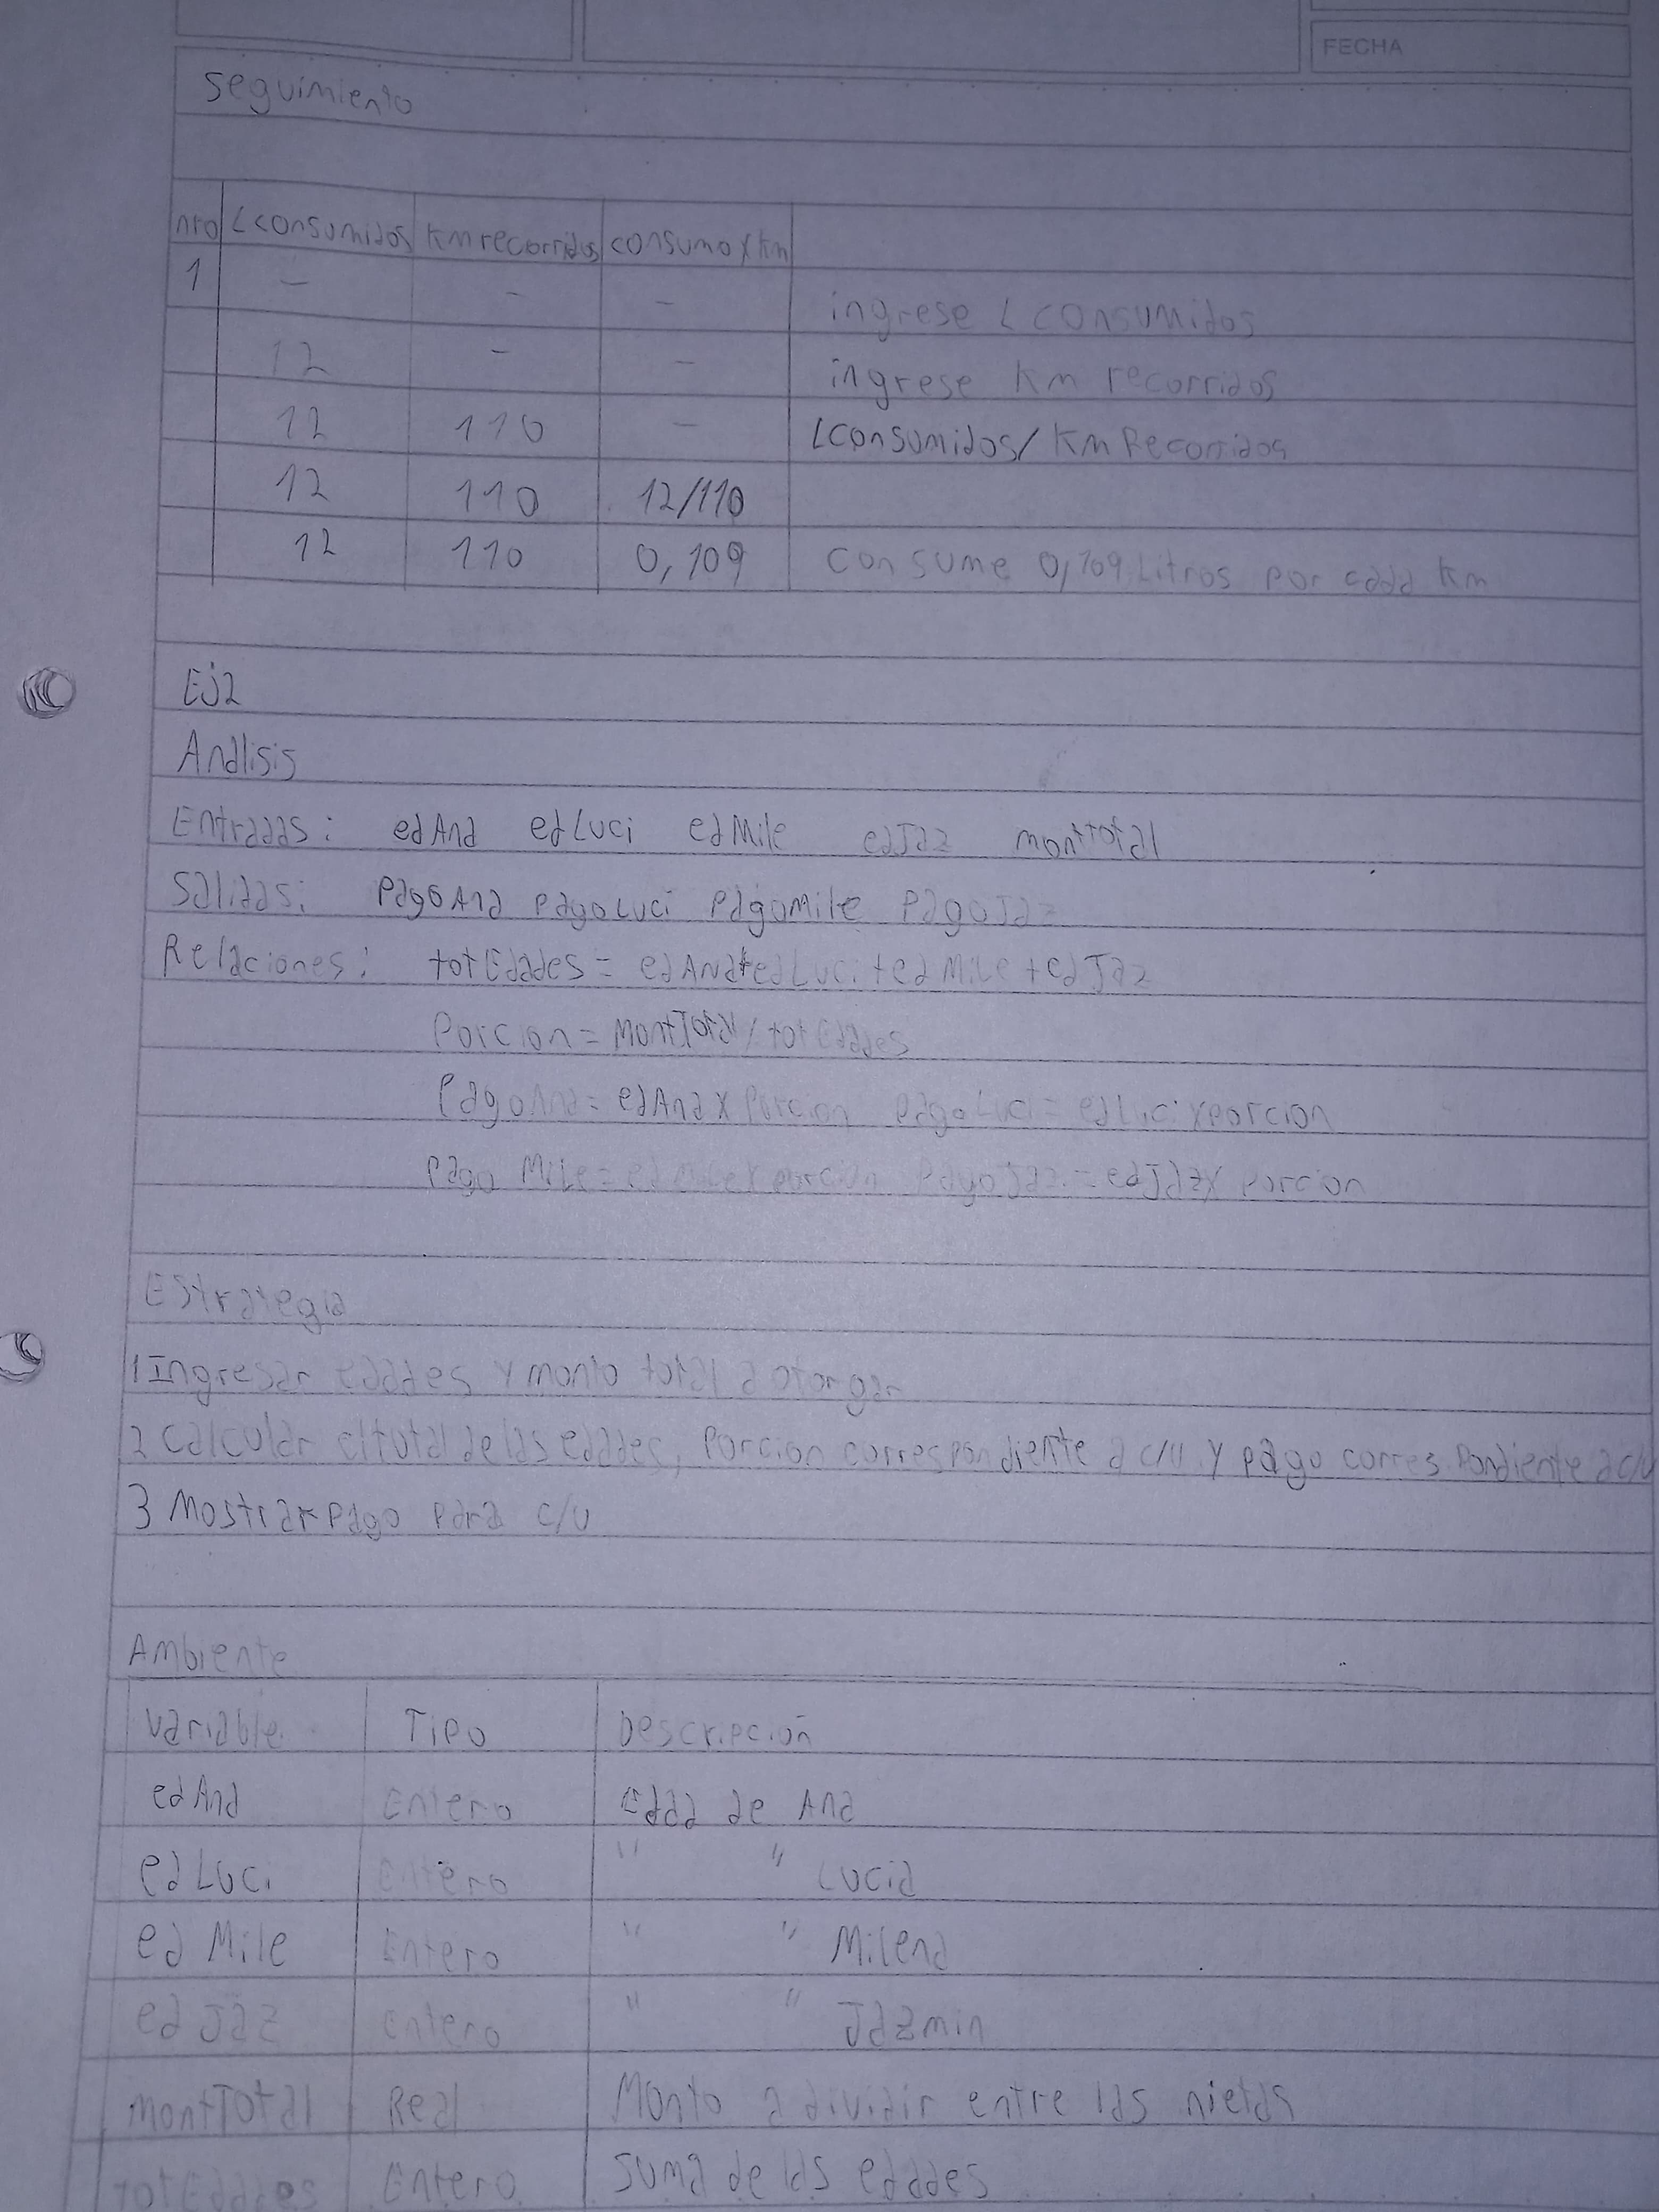 FECHA
Seguimiento
nro L consumidos Km recorridos consumo x km
1 - - - ingrese L consumidos
12 - - ingrese Km recorridos
12 110 - L consumidos / Km Recorridos
12 110 12/110
12 110 0,109 Consume 0,109 Litros por cada Km
Ej2
Análisis
Entradas: edAna edLuci edMile edJaz montTotal
Salidas: PagoAna PagoLuci PagoMile PagoJaz
Relaciones: totEdades = edAna+edLuci+edMile+edJaz
Porcion = MontTotal / totEdades
PagoAna = edAna x Porcion PagoLuci = edLuci x porcion
Pago Mile = edMile x porcion PagoJaz = edJaz x Porcion
Estrategia
1 Ingresar edades y monto total a otorgar
2 Calcular el total de las edades, Porcion correspondiente a c/u y pago correspondiente a c/u
3 Mostrar pago para c/u
Ambiente
Variable Tipo Descripción
edAna Entero Edad de Ana
edLuci Entero " " Lucia
edMile Entero " " Milena
edJaz Entero " " Jazmin
montTotal Real Monto a dividir entre las nietas
totEdades Entero Suma de las edades